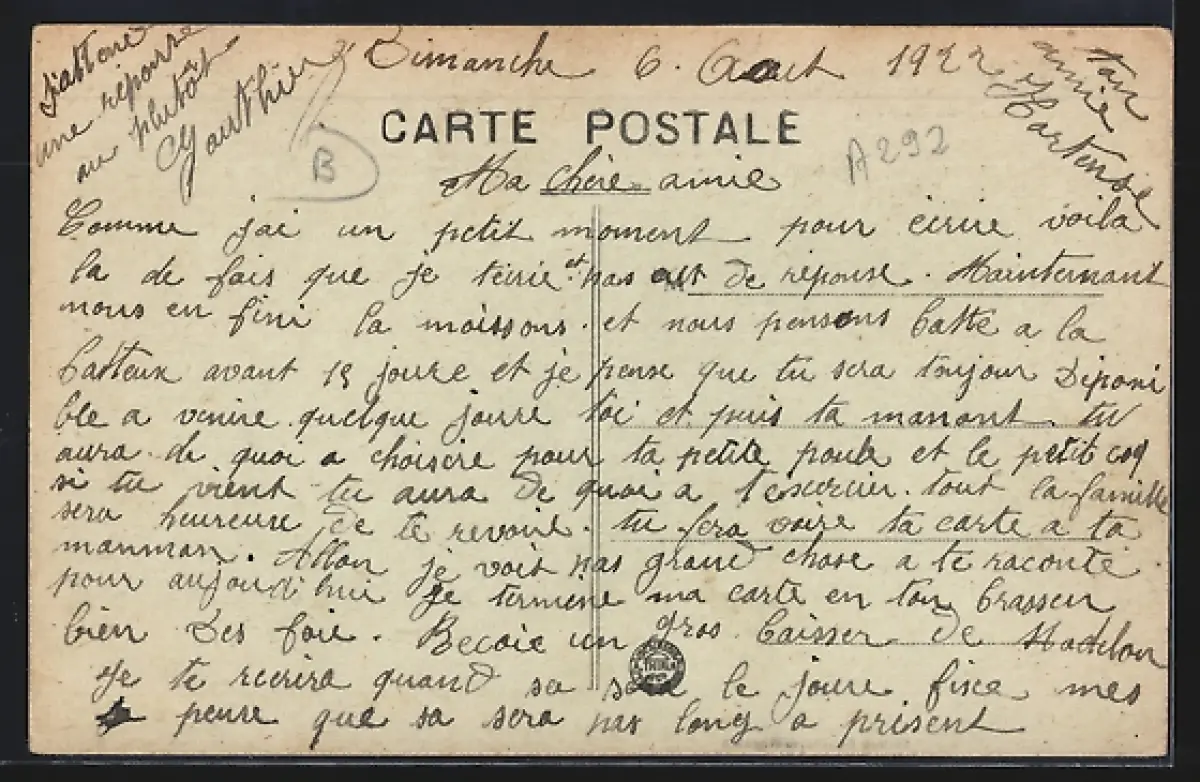 Dimanche 6. Aout 1922
J'attens
une réponse
au plutôt
Gauthier
ton
amie
Hortense
CARTE POSTALE
B
A292
Ma chère amie
Comme jai un petit moment pour écrire voila
la de fois que je técrie et pas de réponse. Maintenant
nous en fini la moissons. et nous pensons batte a la
batteux avant 15 joure et je pense que tu sera toujour Diponi
ble a venire quelque joure toi et puis ta manant. tu
aura de quoi a choisire pour ta petite poule et le petit coq
si tu vient tu aura de quoi a tescercier. tout la famille
sera heureuse de te revoire. tu fera voire ta carte a ta
manman. Allon je voit pas grand chose a te raconté.
pour aujourd'hui je termine ma carte en ton brassen
bien Des foie. Recoie un gros baisser de Madelon
Je te recrira quand sa sera le joure fixe mes
pense que sa sera pas long a présent